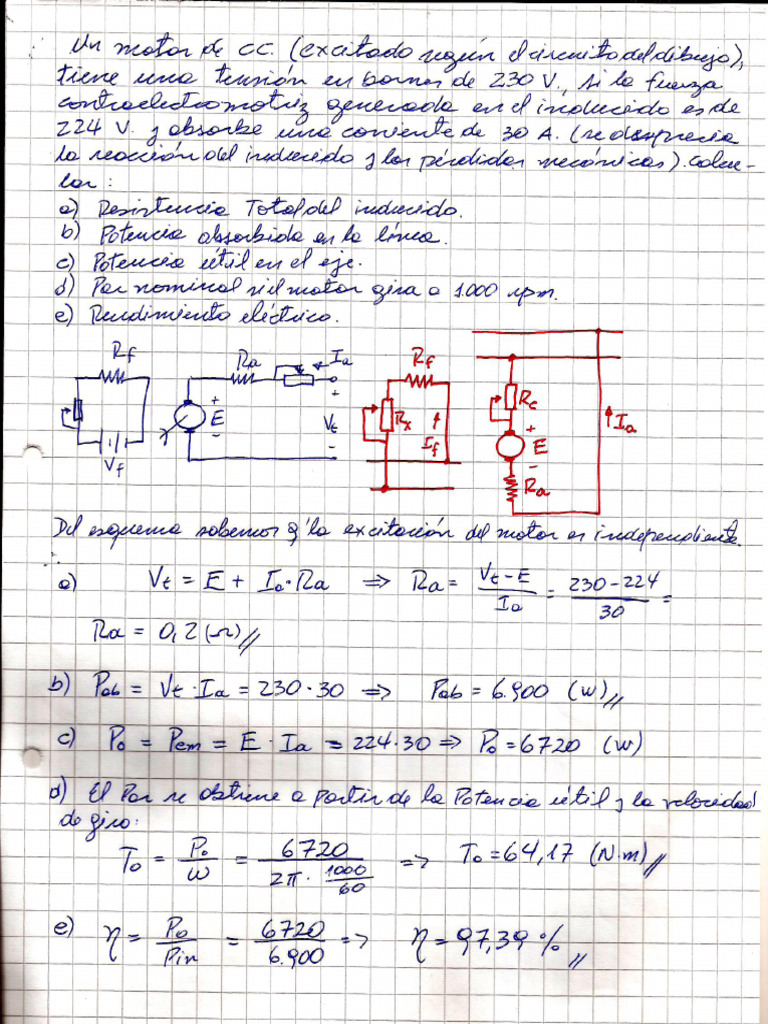 Un motor de cc. (excitado según el circuito del dibujo),
tiene una tensión en bornes de 230 V., si la fuerza
contraelectromotriz generada en el inducido es de
224 V. y absorbe una corriente de 30 A. (se desprecia
la reacción del inducido y las pérdidas mecánicas). Calcu-
lar :
a) Resistencia Total del inducido.
b) Potencia absorbida en la línea.
c) Potencia útil en el eje.
d) Par nominal si el motor gira a 1.000 rpm.
e) Rendimiento eléctrico.
Rf Ra Ia Rf
Rc
E Vt Rx If E Ia
Vf Ra
Del esquema sabemos q' la excitación del motor es independiente.
a) Vt = E + Ia·Ra => Ra = Vt-E/Ia = 230-224/30 =
Ra = 0,2 (Ω)//
b) Pab = Vt·Ia = 230·30 => Pab = 6.900 (W)//
c) Po = Pem = E·Ia = 224·30 => Po = 6720 (W)
d) El Par se obtiene a partir de la Potencia útil y la velocidad
de giro:
To = Po/ω = 6720/2π·1000/60 => To = 64,17 (N·m)//
e) η = Po/Pin = 6720/6.900 => η = 97,39 %//